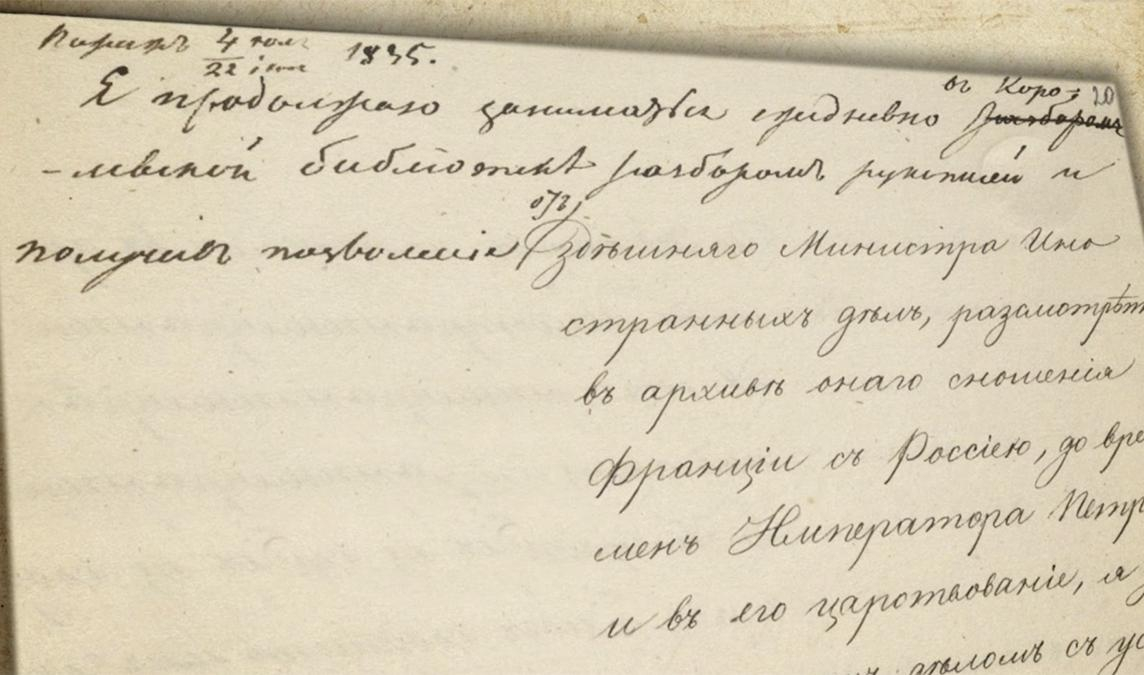 Парижъ 4/22 1835.
въ Коро- 20
Я продолжаю заниматься ежедневно разборомъ
-левской библіотекѣ разборомъ рукописей и
отъ
получивъ позволеніе здѣшняго Министра Ино
странныхъ дѣлъ, разсмотрѣть
въ архивѣ онаго сношенія
Франціи съ Россіею, до вре
менъ Императора Петр
и въ его царствованіе, я
дѣломъ съ ус